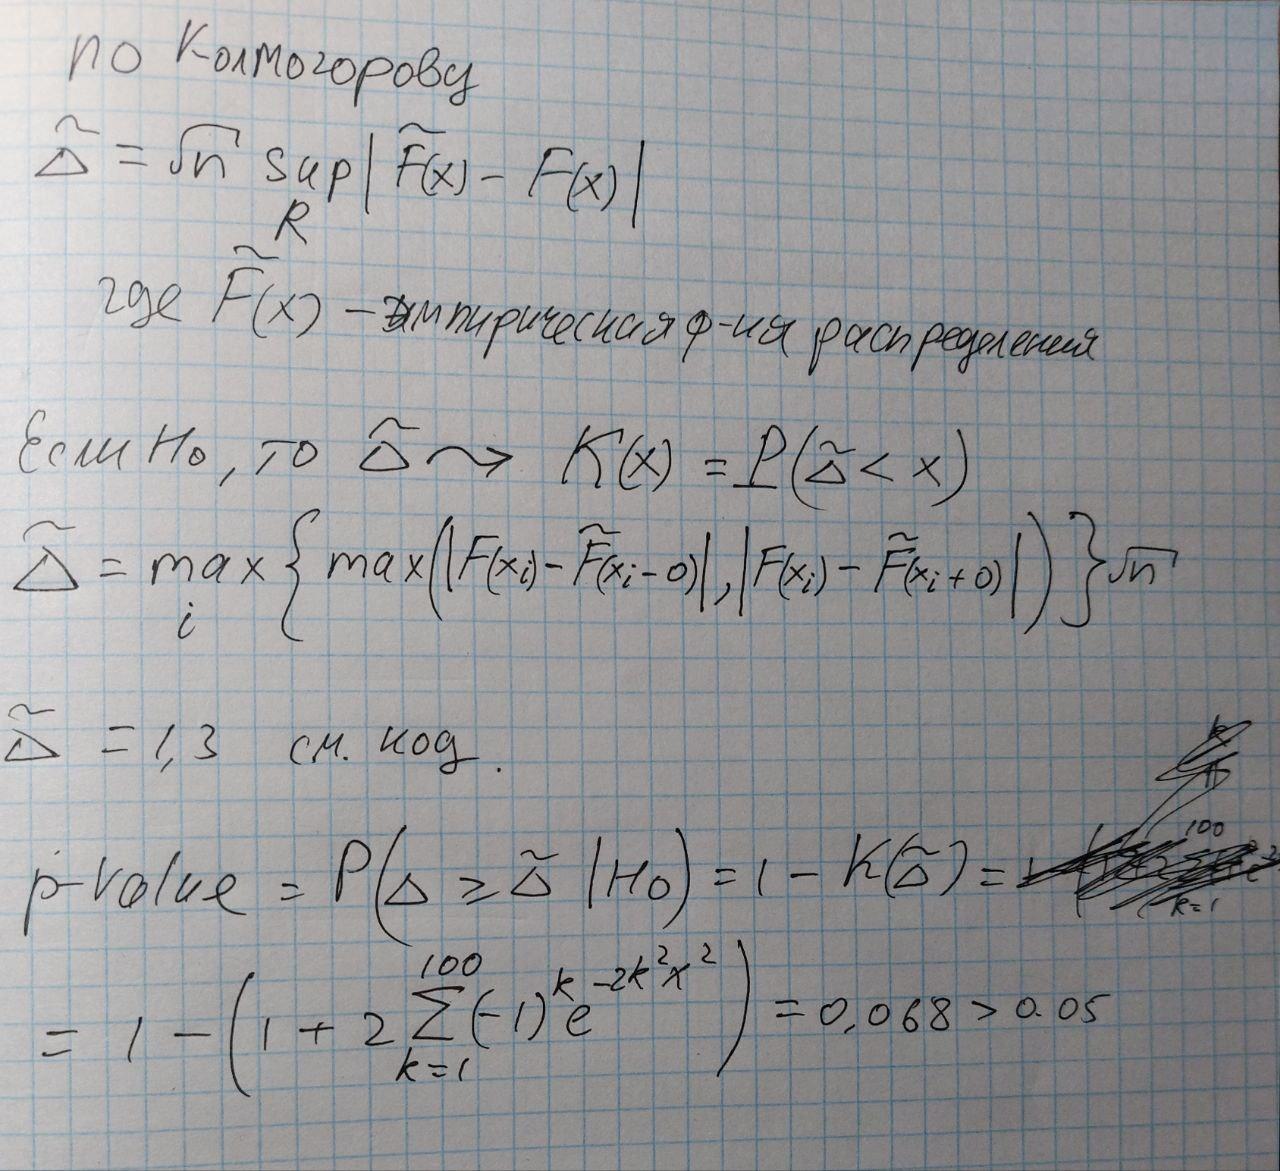 по Колмогорову
Δ̃ = √n sup | F̃(x) - F(x) |
R
где F̃(x) - эмпирическая ф-ия распределения
Если H₀, то Δ̃ ⇝ K(x) = P(Δ̃ < x)
Δ̃ = max { max(|F(xᵢ) - F̃(xᵢ-0)|, |F(xᵢ) - F̃(xᵢ+0)|) } √n
i
Δ̃ = 1,3 см. код.
p-value = P(Δ ≥ Δ̃ | H₀) = 1 - K(Δ̃) =
100
k=1
= 1 - (1 + 2 ∑ₖ₌₁¹⁰⁰ (-1)ᵏ e^(-2k²x²)) = 0,068 > 0.05